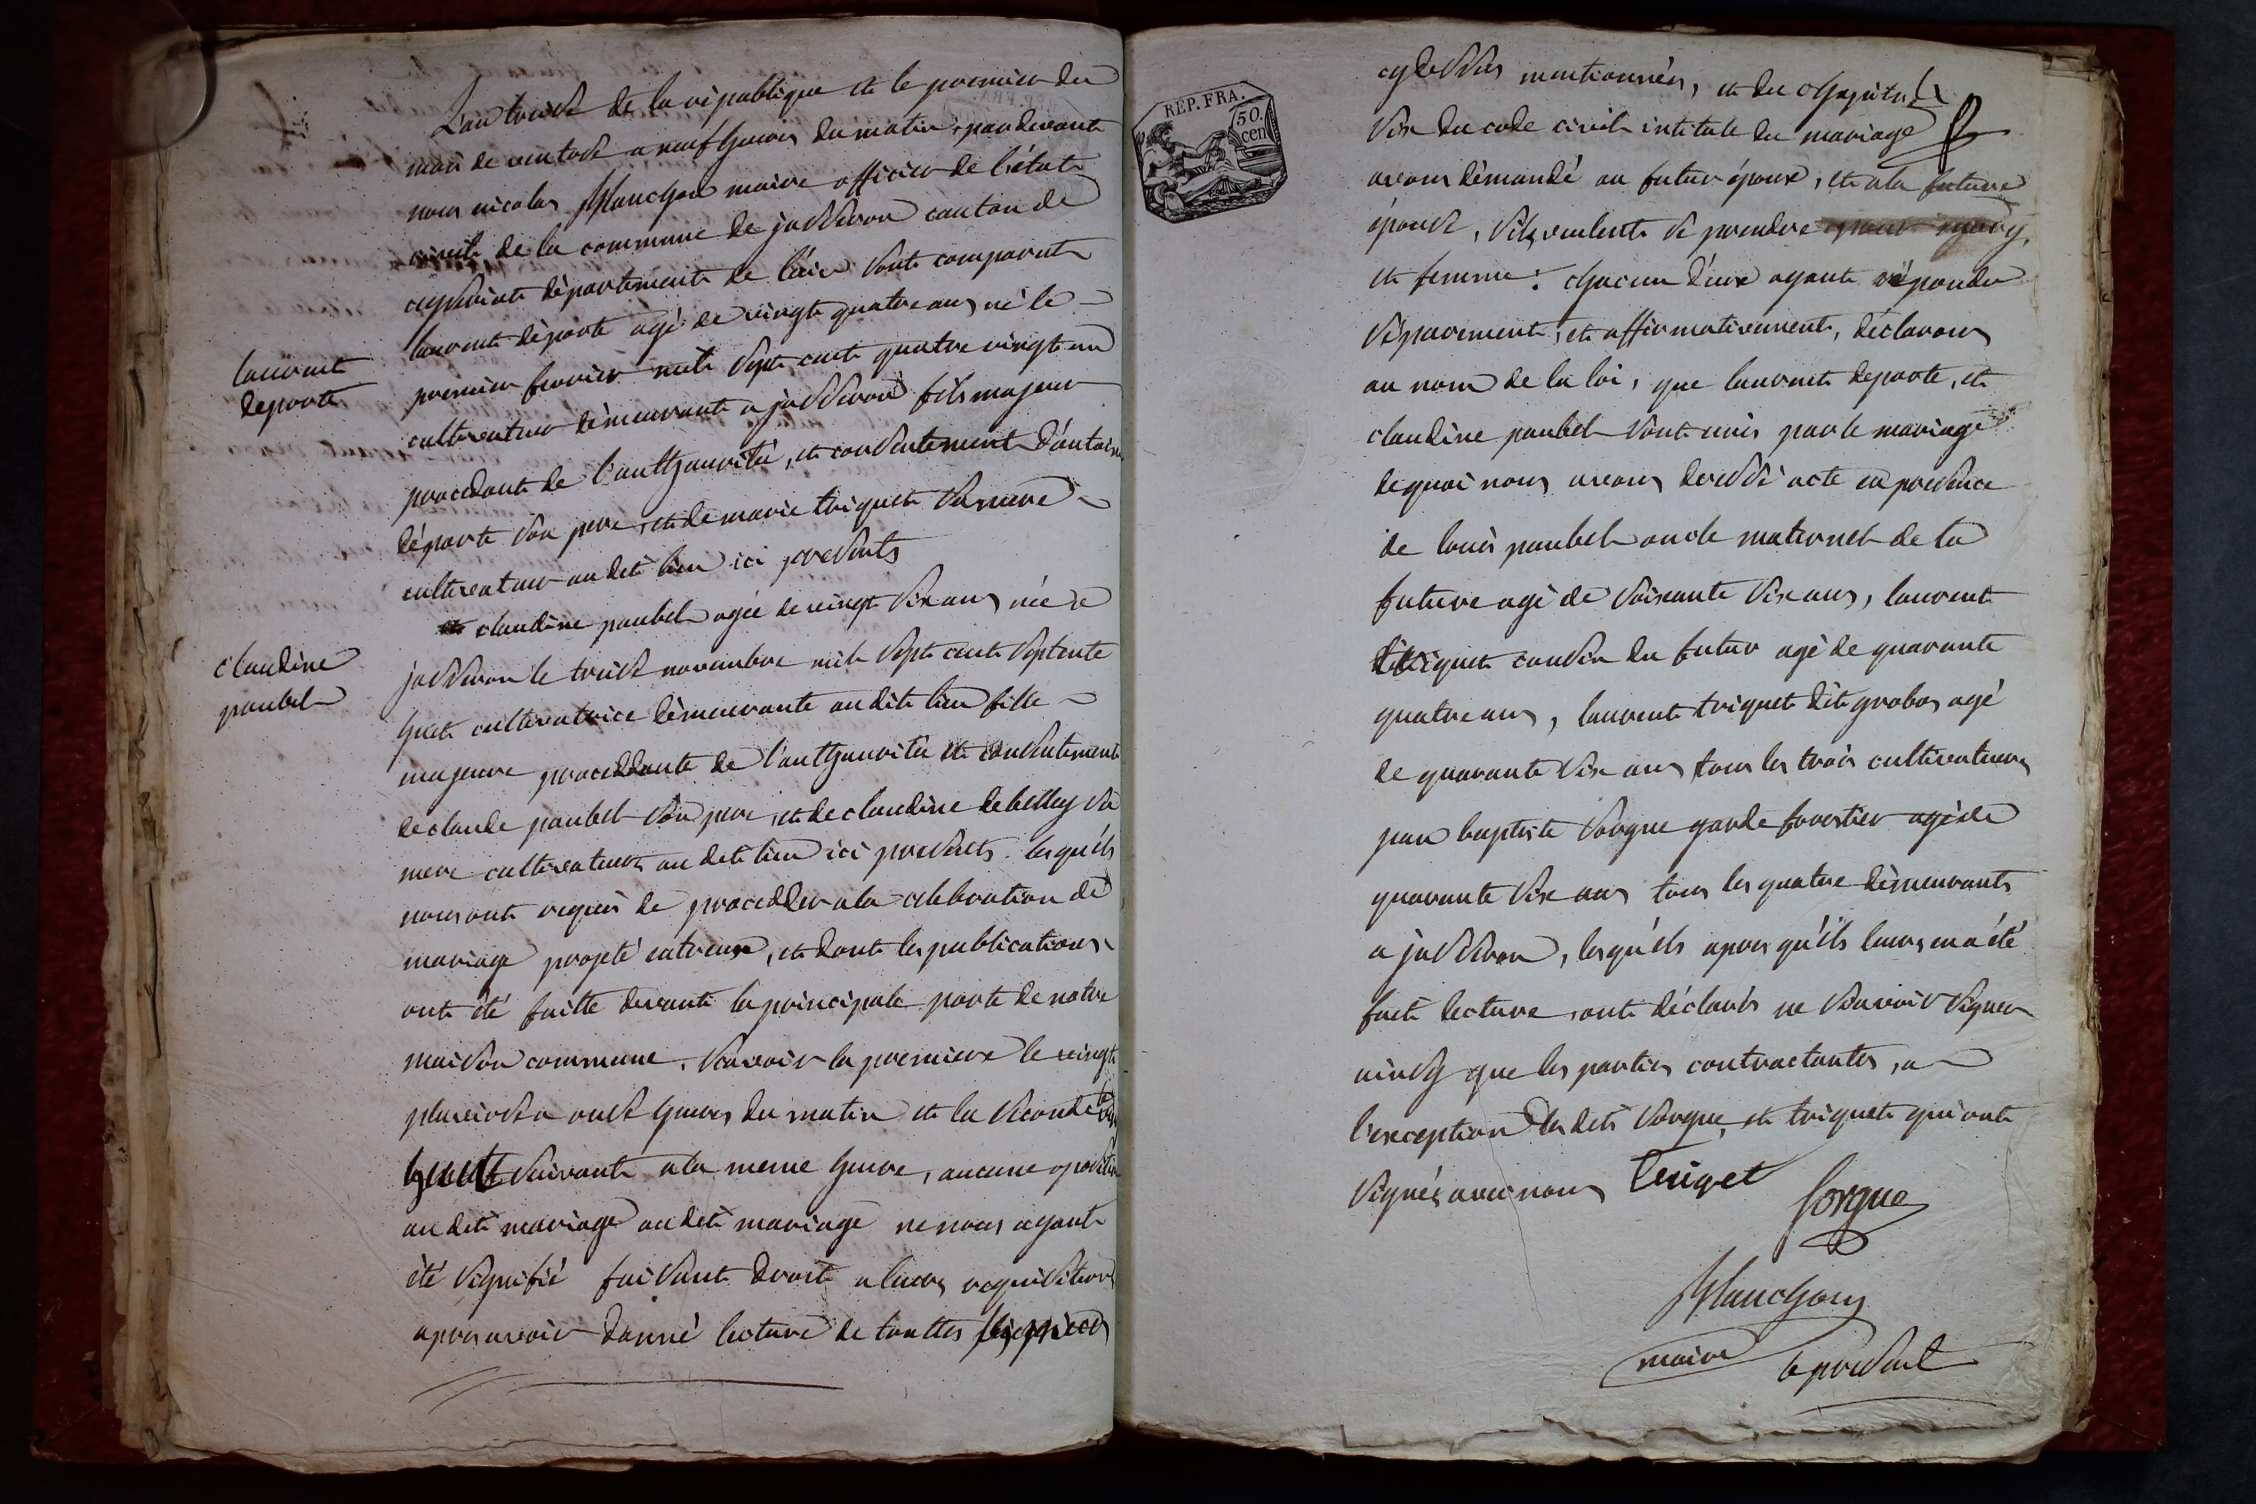 L'an treise de la république et le premier du
mois de ventose a neuf heures du matin, pardevant
nous nicolas planchon maire officier de l'état
civile de la commune de jasseron canton de
ceyseriat département de l'ain sont comparut
laurent déporte agé de vingt quatre ans né le
premier fevrier mile sept cent quatre vingt un
cultivateur démeurante a jasseron fils majeur
procedant de l'authourité, et consentement d'antoine
déporte son pere, et de marie triquet sa mere
cultivateur au dit lieu ici presents
laurent
deporte
et claudine paubel agée de vingt six ans née a
jasseron le treise novembre mile sept cent septente
huit cultivatrice démeurante au dit lieu fille
majeure proceddante de l'authourité et consentement
de claude paubel son pere, et de claudine debelley sa
mere cultivateurs au dit lieu ici presents. lesqu'els
nous ont requis de procedder a la celebration de
mariage projeté entreux, et dont les publications
ont été faitte devant la principale porte de notre
maison commune. Scavoir la premiere le vingt
pluviose a onse heures du matin et la seconde le
suivante a la meme heure, aucune oposition
au dit mariage au dit mariage ne nous ayant
été signifié faisant droit a leurs requisitions
apres avoir donné lecture de touttes les pieces
claudine
paubel
REP. FRA.
50.
cen
cy dessus mentionnées, et du chapitre
six du code civil intitulé du mariage
avons démandé au futur époux, et a la future
épouse, s'ils veulent se prendre pour mary,
et femme: chacun d'eux ayant répondu
séparement, et affirmativement, déclarons
au nom de la loi, que laurent deporte, et
claudine paubel sont unis par le mariage
de quoi nous avons dressé acte en presence
de louis paubel oncle maternel de la
future agé de soixante six ans, laurent
triquet cousin du futur agé de quarante
quatre ans, laurent triquet dit grobos agé
de quarante six ans tous les trois cultivateurs
jean baptiste sorgue garde forestier agé de
quarante six ans tous les quatre démeurants
a jasseron, lesqu'els apres qu'ils leurs en a été
fait lecture, ont déclarés ne scavoir signer
ainsy que les parties contractantes, a
l'exception des dits sorgue, et triquet qui ont
signés avec nous Teriqet
Sorgue
planchon
maire
a present